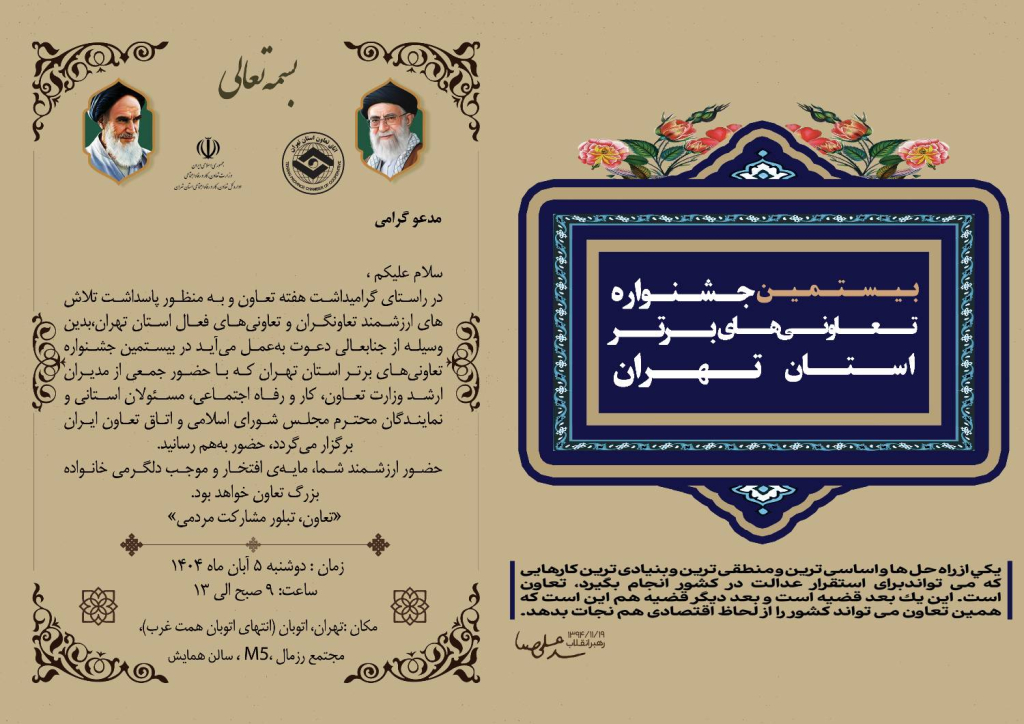 بیستمین جشنواره
تعاونی‌های برتر
استان تهران
یکی از راه حل ها و اساسی ترین و منطقی ترین و بنیادی ترین کارهایی
که می تواند برای استقرار عدالت در کشور انجام بگیرد، تعاون
است. این یك بعد قضیه است و بعد دیگر قضیه هم این است که
همین تعاون می تواند کشور را از لحاظ اقتصادی هم نجات بدهد.
۱۳۹۴/۱۱/۱۹
رهبر انقلاب
بسمه تعالی
اتاق تعاون استان تهران
TEHRAN PROVINCE CHAMBER OF COOPERATIVE
جمهوری اسلامی ایران
وزارت تعاون، کار و رفاه اجتماعی
اداره کل تعاون، کار و رفاه اجتماعی استان تهران
مدعو گرامی
سلام علیکم ،
در راستای گرامیداشت هفته تعاون و به منظور پاسداشت تلاش
های ارزشمند تعاونگران و تعاونی‌های فعال استان تهران،بدین
وسیله از جنابعالی دعوت به‌عمل می‌آید در بیستمین جشنواره
تعاونی‌های برتر استان تهران که با حضور جمعی از مدیران
ارشد وزارت تعاون، کار و رفاه اجتماعی، مسئولان استانی و
نمایندگان محترم مجلس شورای اسلامی و اتاق تعاون ایران
برگزار می‌گردد، حضور به‌هم رسانید.
حضور ارزشمند شما، مایه‌ی افتخار و موجب دلگرمی خانواده
بزرگ تعاون خواهد بود.
«تعاون، تبلور مشارکت مردمی»
زمان : دوشنبه ۵ آبان ماه ۱۴۰۴
ساعت: ۹ صبح الی ۱۳
مکان :تهران، اتوبان (انتهای اتوبان همت غرب)،
مجتمع رزمال ،M5 ، سالن همایش